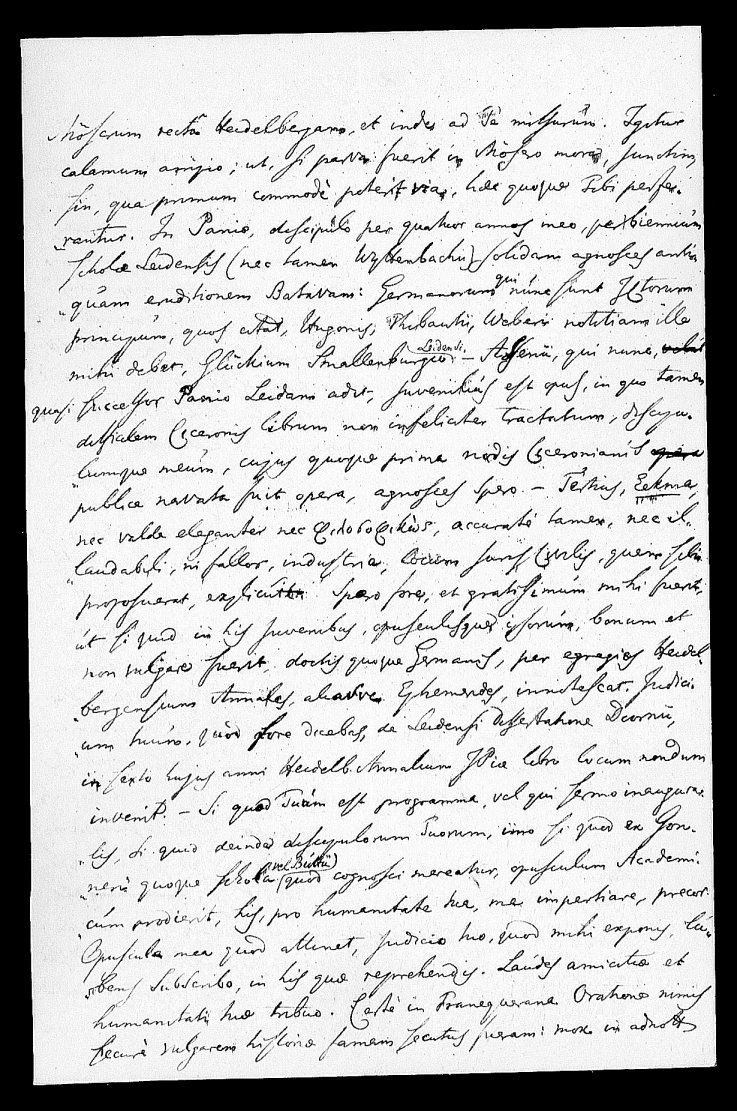 Mösserum recta Heidelbergam, et inde ad Te missurum. Igitur
calamum arripio; ut, si parva fuerit in Mössero mora, junctim,
sin, qua primum commodè poterit via, hæc quoque Tibi perfe-
„rantur. In Panio, discipulo per quatuor annos meo, per biennium
Scholæ Leidensis (nec tamen Wyttenbachii) solidam agnosces anti-
„quam eruditionem Batavam: Germanorum qui nunc sunt JCtorum
principum, quos citat, Hugonis, Thibautii, Weberi notitiam ille
mihi debet, Glückium Smallenburgio Leidensi. – Assenii, qui nunc,
quasi successor Panio Leidam adit, juvenilius est opus, in quo tamen
difficilem Ciceronis librum non infeliciter tractatum, discipu-
„lumque meum, cujus quoque prima nodis Ciceronianis
publice navata fuit opera, agnosces spero. – Tertius, Eekma,
nec valde eleganter nec φιλοσοφικῶς, accuratè tamen, nec il-
„laudabili, ni fallor, industria, locum Juris Civilis, quem sibi
proposuerat, explicuit. Spero fore, et gratissimum mihi fuerit,
ut si quid in his juvenibus, opusculisque ipsorum, bonum et
non vulgare fuerit, doctis quoque Germanis, per egregios Heidel-
„bergensium Annales, aliasve Ephemerides, innotescat. Judici-
„um tuum, quod fore dicebas, de Leidensi Dissertatione Doornii,
in sexto hujus anni Heidelb. Annalium JPiæ libro locum nondum
invenit. – Si quod Tuum est programma, vel qui sermo inaugura-
„lis, si quid deinde discipulorum Tuorum, imo si quid ex Gon-
„nerii quoque schola (vel Büttii) quod cognosci mereatur, opusculum Academi-
„cum prodierit, his, pro humanitate tua, me impertiare, precor.
Opuscula mea quod attinet, judicio tuo, quod mihi exponis, lu-„
„bens subscribo, in his quæ reprehendis. Laudes amicitiæ et
humanitati tuæ tribuo. Certè in Franequerana Oratione nimis
securè vulgarem historiæ famam secutus fueram: mox in adnott.